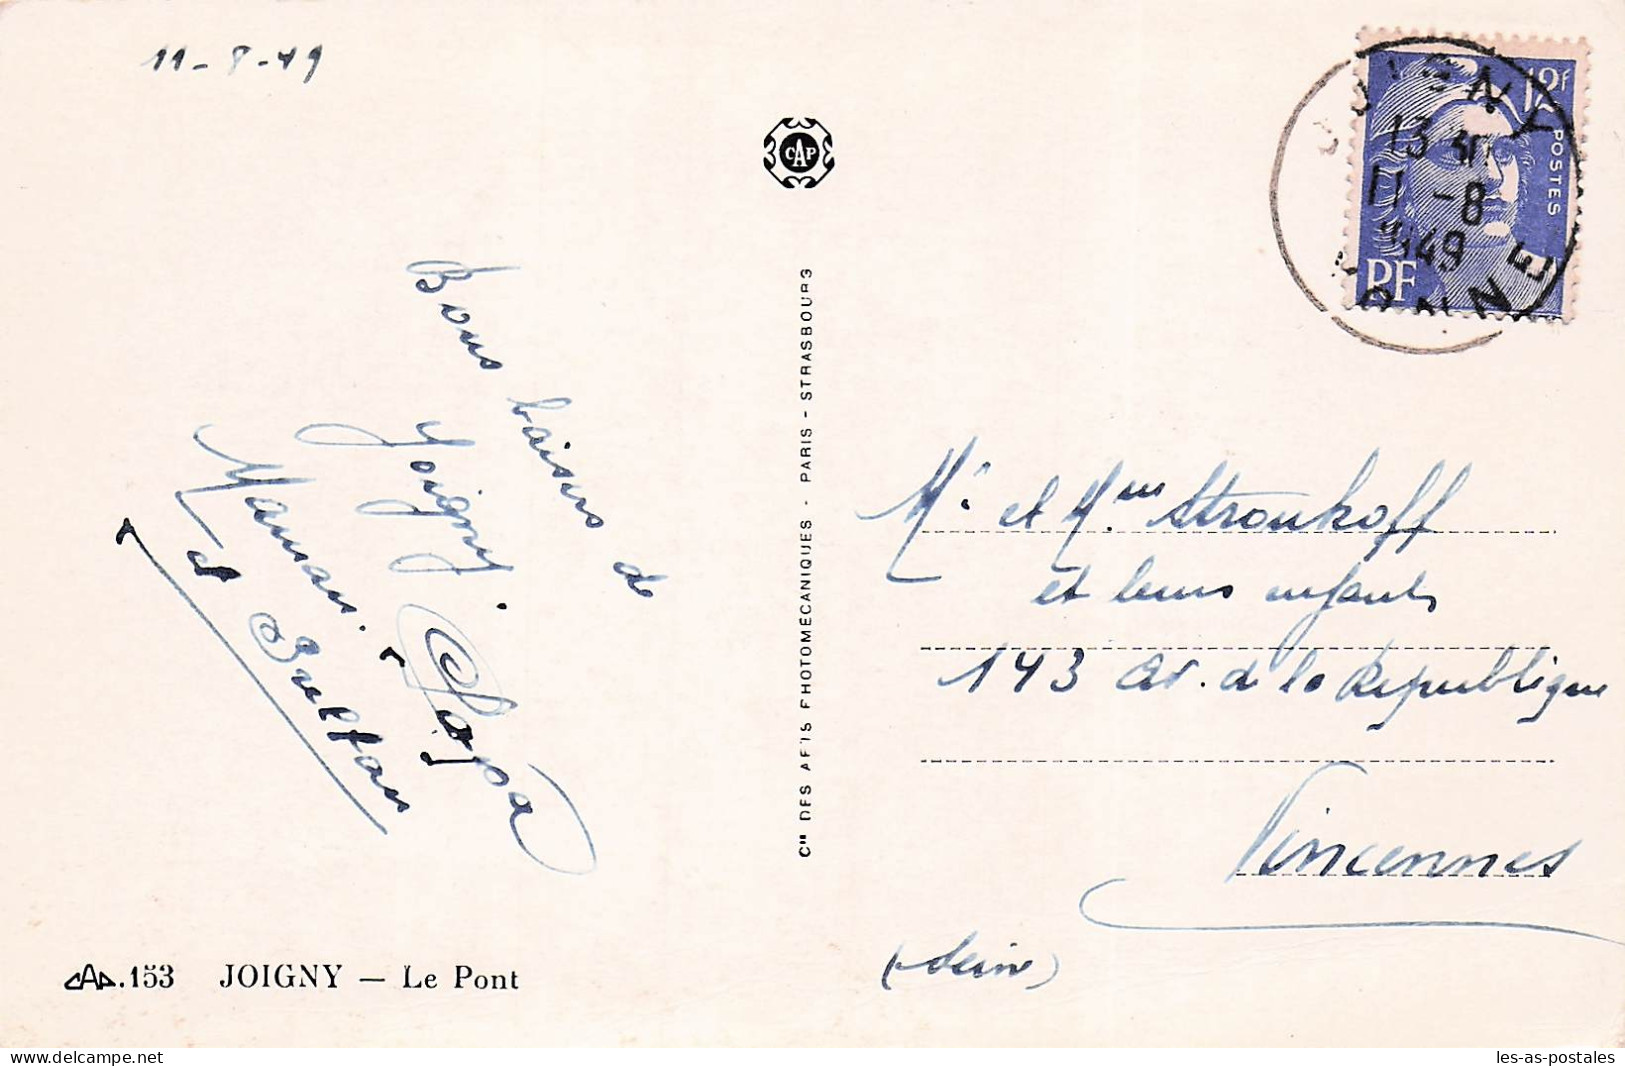 11-8-49
CAP
12f
POSTES
PF
JOIGNY
13 30
11 -8
1949
YONNE
Bons baisers de
Joigny.
Papa
Maman.
et
Cie DES ARTS PHOTOMÉCANIQUES - PARIS - STRASBOURG
Mr et Mme Stroukoff
et leurs enfants
143 av. de la République
Vincennes
(Seine)
CAP.153 JOIGNY — Le Pont
delcampe.net
les-as-postales